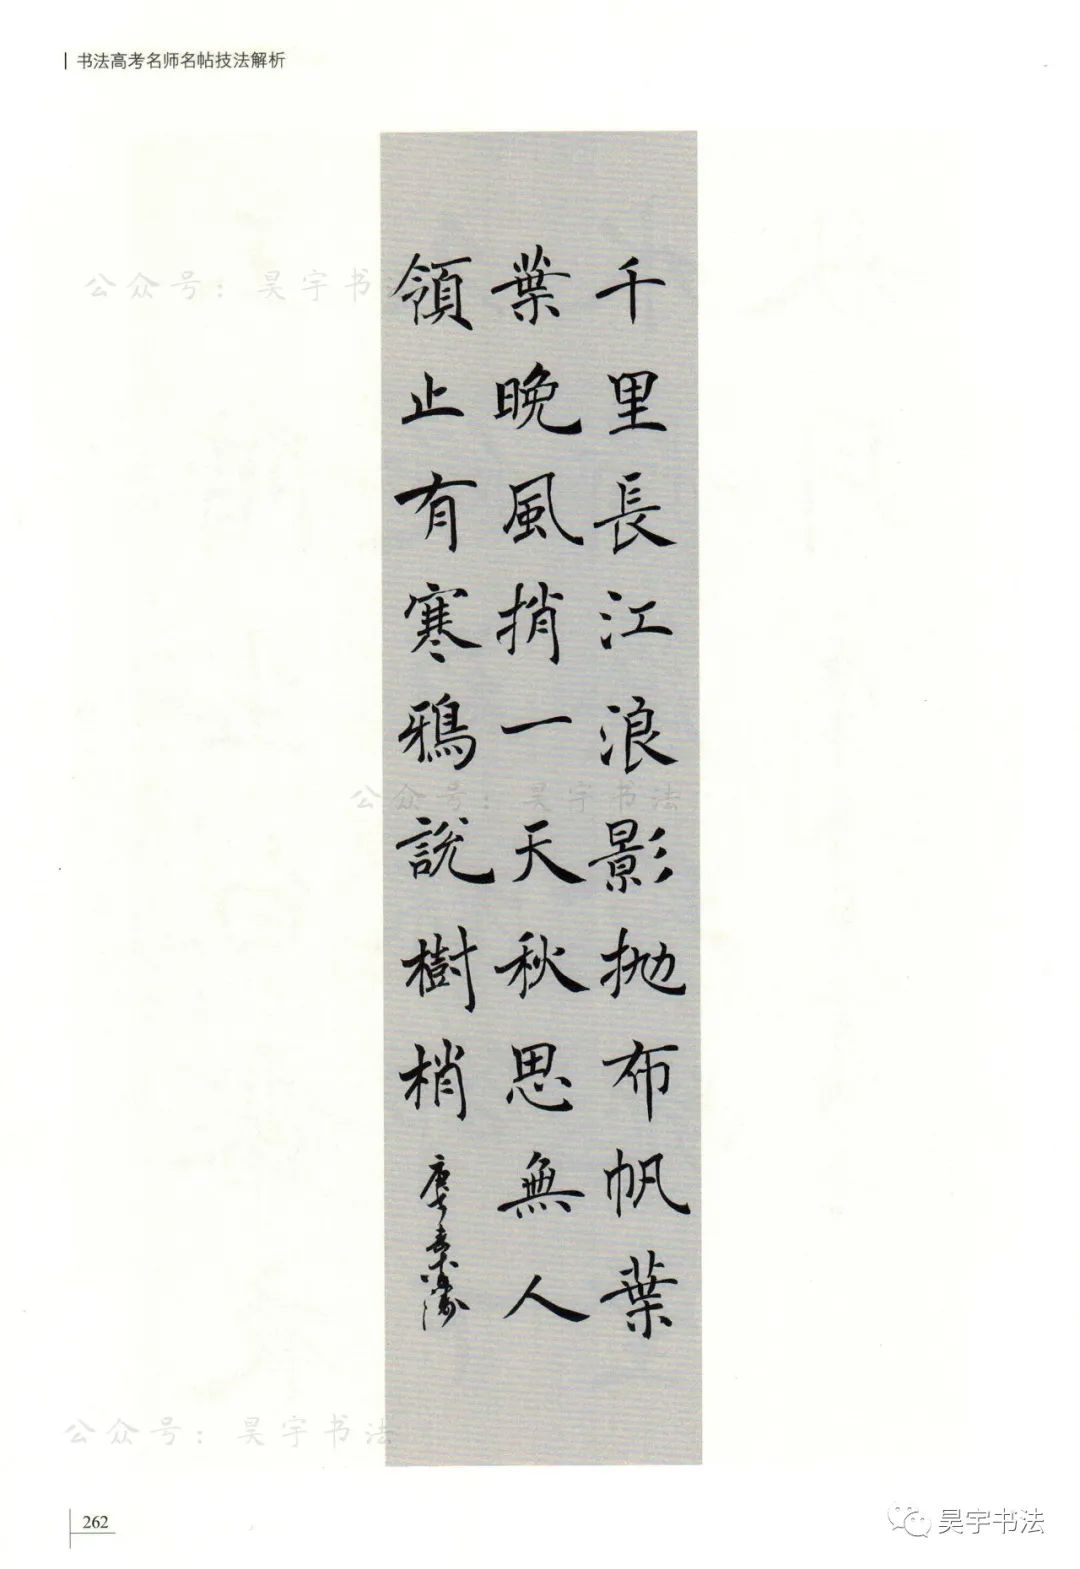 书法高考名师名帖技法解析
千里長江浪影抛布帆葉
葉晚風捎一天秋思無人
領止有寒鴉說樹梢
公众号：昊宇书法
公众号：昊宇书法
公众号：昊宇书法
262
昊宇书法